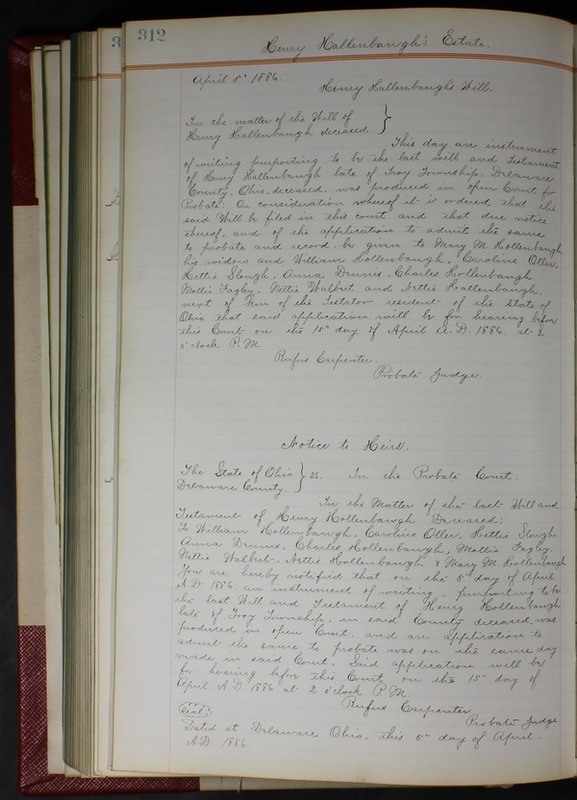 312
Henry Hallenbaugh's Estate.
April 5" 1886.
Henry Hallenbaugh's Will.
In the matter of the Will of
Henry Hallenbaugh deceased }
This day an instrument
of writing purporting to be the last will and Testament
of Henry Hallenbaugh late of Troy Township, Delaware
County, Ohio, deceased, was produced in open Court for
Probate: On consideration whereof it is ordered that the
said Will be filed in this court and that due notice
thereof, and of the application to admit the same
to probate and record, be given to Mary M Hollenbaugh
his widow and William Hollenbaugh, Caroline Oller,
Hettie Slough, Anna Dennis, Charles Hollenbaugh
Mollie Fagley, Nettie Walbert and Nettie Hallenbaugh,
next of Kin of the Testator resident of the State of
Ohio that said application will be for hearing before
this Court on the 15" day of April A.D. 1886. at 2
o'clock P.M
Rufus Carpenter.
Probate Judge.
Notice to Heirs.
The State of Ohio } ss. In the Probate Court:
Delaware County.
In the Matter of the last Will and
Testament of Henry Hollenbaugh Deceased:
To William Hollenbaugh, Caroline Oller, Hettie Slough
Anna Dennis, Charles Hollenbaugh, Mollie Fagley.
Nettie Walbert, Nettie Hallenbaugh & Mary M. Hollenbaugh
You are hereby notified that on the 5" day of April
A.D. 1886 an instrument of writing, purporting to be
the last Will and Testament of Henry Hollenbaugh
late of Troy Township, in said County deceased, was
produced in open Court, and an application to
admit the same to probate was on the same day
made in said Court. Said application will be
for hearing before this Court on the 15" day of
April A.D 1886 at 2 o'clock P.M.
Rufus Carpenter
Probate Judge
Seal
Dated at Delaware Ohio, this 5" day of April.
A.D. 1886.